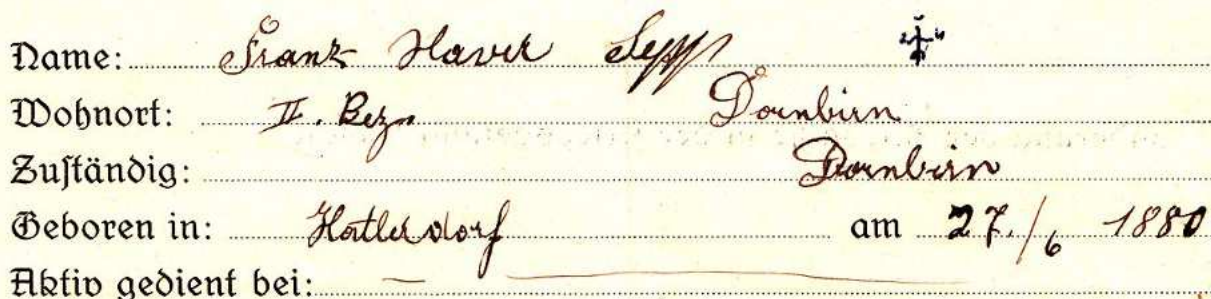 Name: Franz Xaver Sepp
Wohnort: II. Bez. Dornbirn
Zuständig: Dornbirn
Geboren in: Hatlerdorf am 27./6 1880
Aktiv gedient bei: —